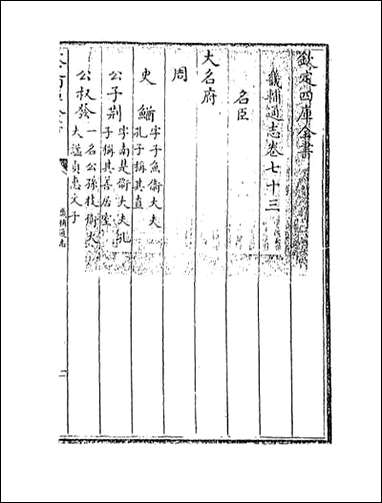 欽定四庫全書
畿輔通志卷七十三
名臣
大名府
周
史鰌 字子魚衛大夫
孔子稱其直
公子荆 字南是衛大夫孔
子稱其善居室
公叔發 一名公孫枝衛大
夫諡貞惠文子
畿輔通志
一